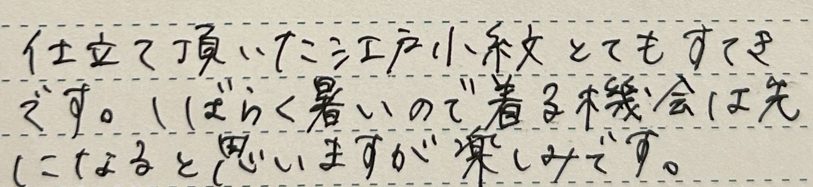 仕立て頂いた江戸小紋とてもすてき
です。しばらく暑いので着る機会は先
になると思いますが楽しみです。